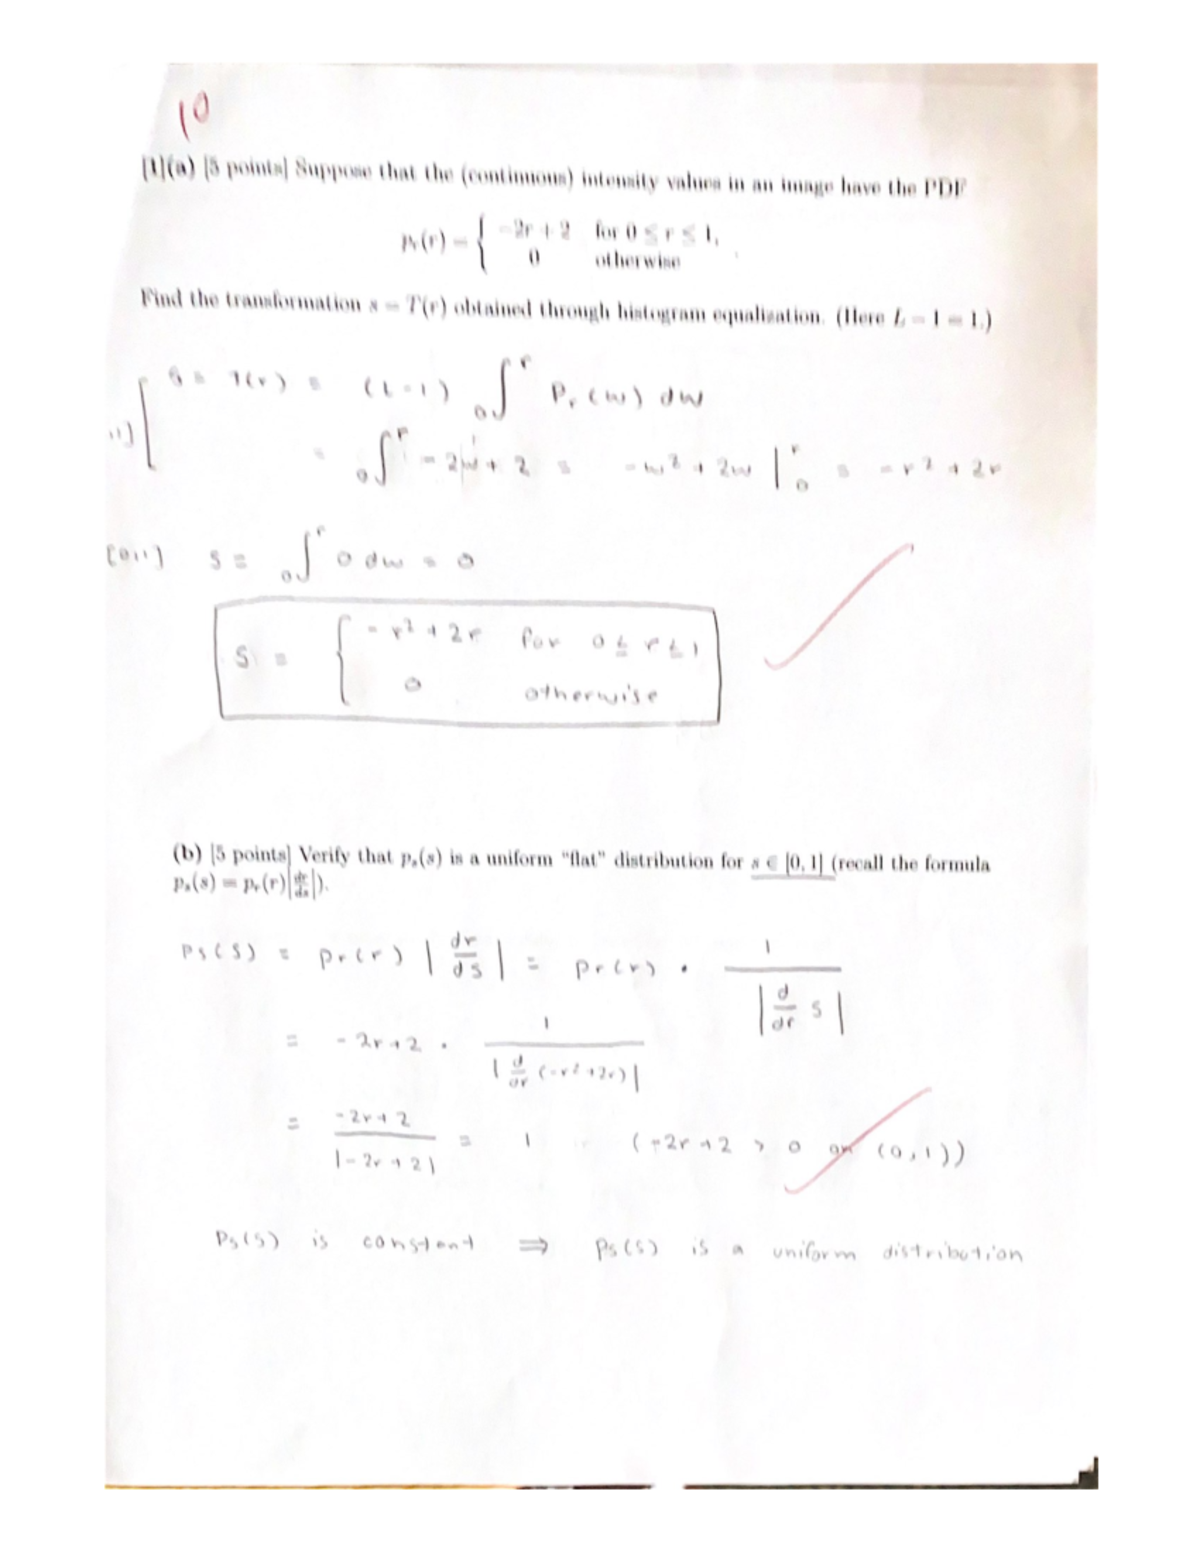 10
[1](a) [5 points] Suppose that the (continuous) intensity values in an image have the PDF
pᵣ(r) = { -2r + 2 for 0 ≤ r ≤ 1,
0 otherwise
Find the transformation s = T(r) obtained through histogram equalization. (Here L - 1 = 1.)
S = T(r) = (L-1) ₀∫ʳ Pᵣ(w) dw
= ₀∫ʳ -2w + 2 = -w² + 2w |₀ʳ = -r² + 2r
S = ₀∫ʳ 0 dw = 0
S = { -r² + 2r for 0 ≤ r ≤ 1
0 otherwise
(b) [5 points] Verify that pₛ(s) is a uniform "flat" distribution for s ∈ [0, 1] (recall the formula
pₛ(s) = pᵣ(r)|dr/ds|).
Ps(S) = Pr(r) | dr/ds | = Pr(r) · 1 / | d/dr S |
= -2r+2 · 1 / | d/dr (-r²+2r) |
= -2r+2 / |-2r+2| = 1 (-2r+2 > 0 on (0,1))
Ps(S) is constant ⇒ Ps(S) is a uniform distribution